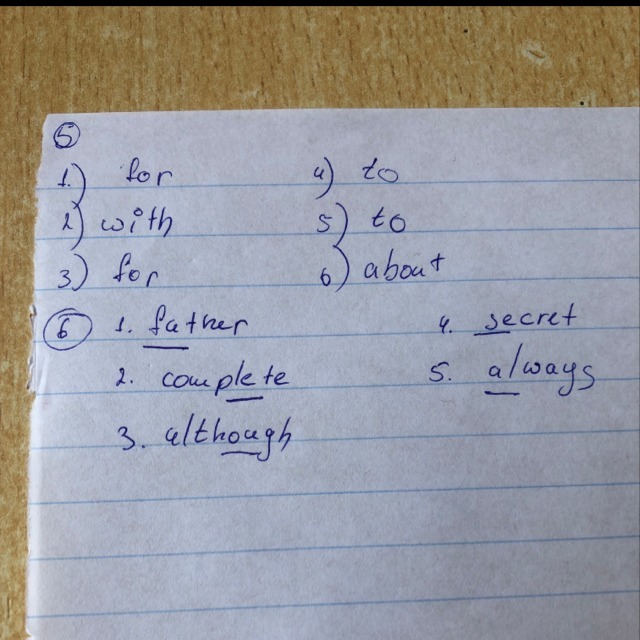 5
1) for 4) to
2) with 5) to
3) for 6) about
6 1. father 4. secret
2. complete 5. always
3. although